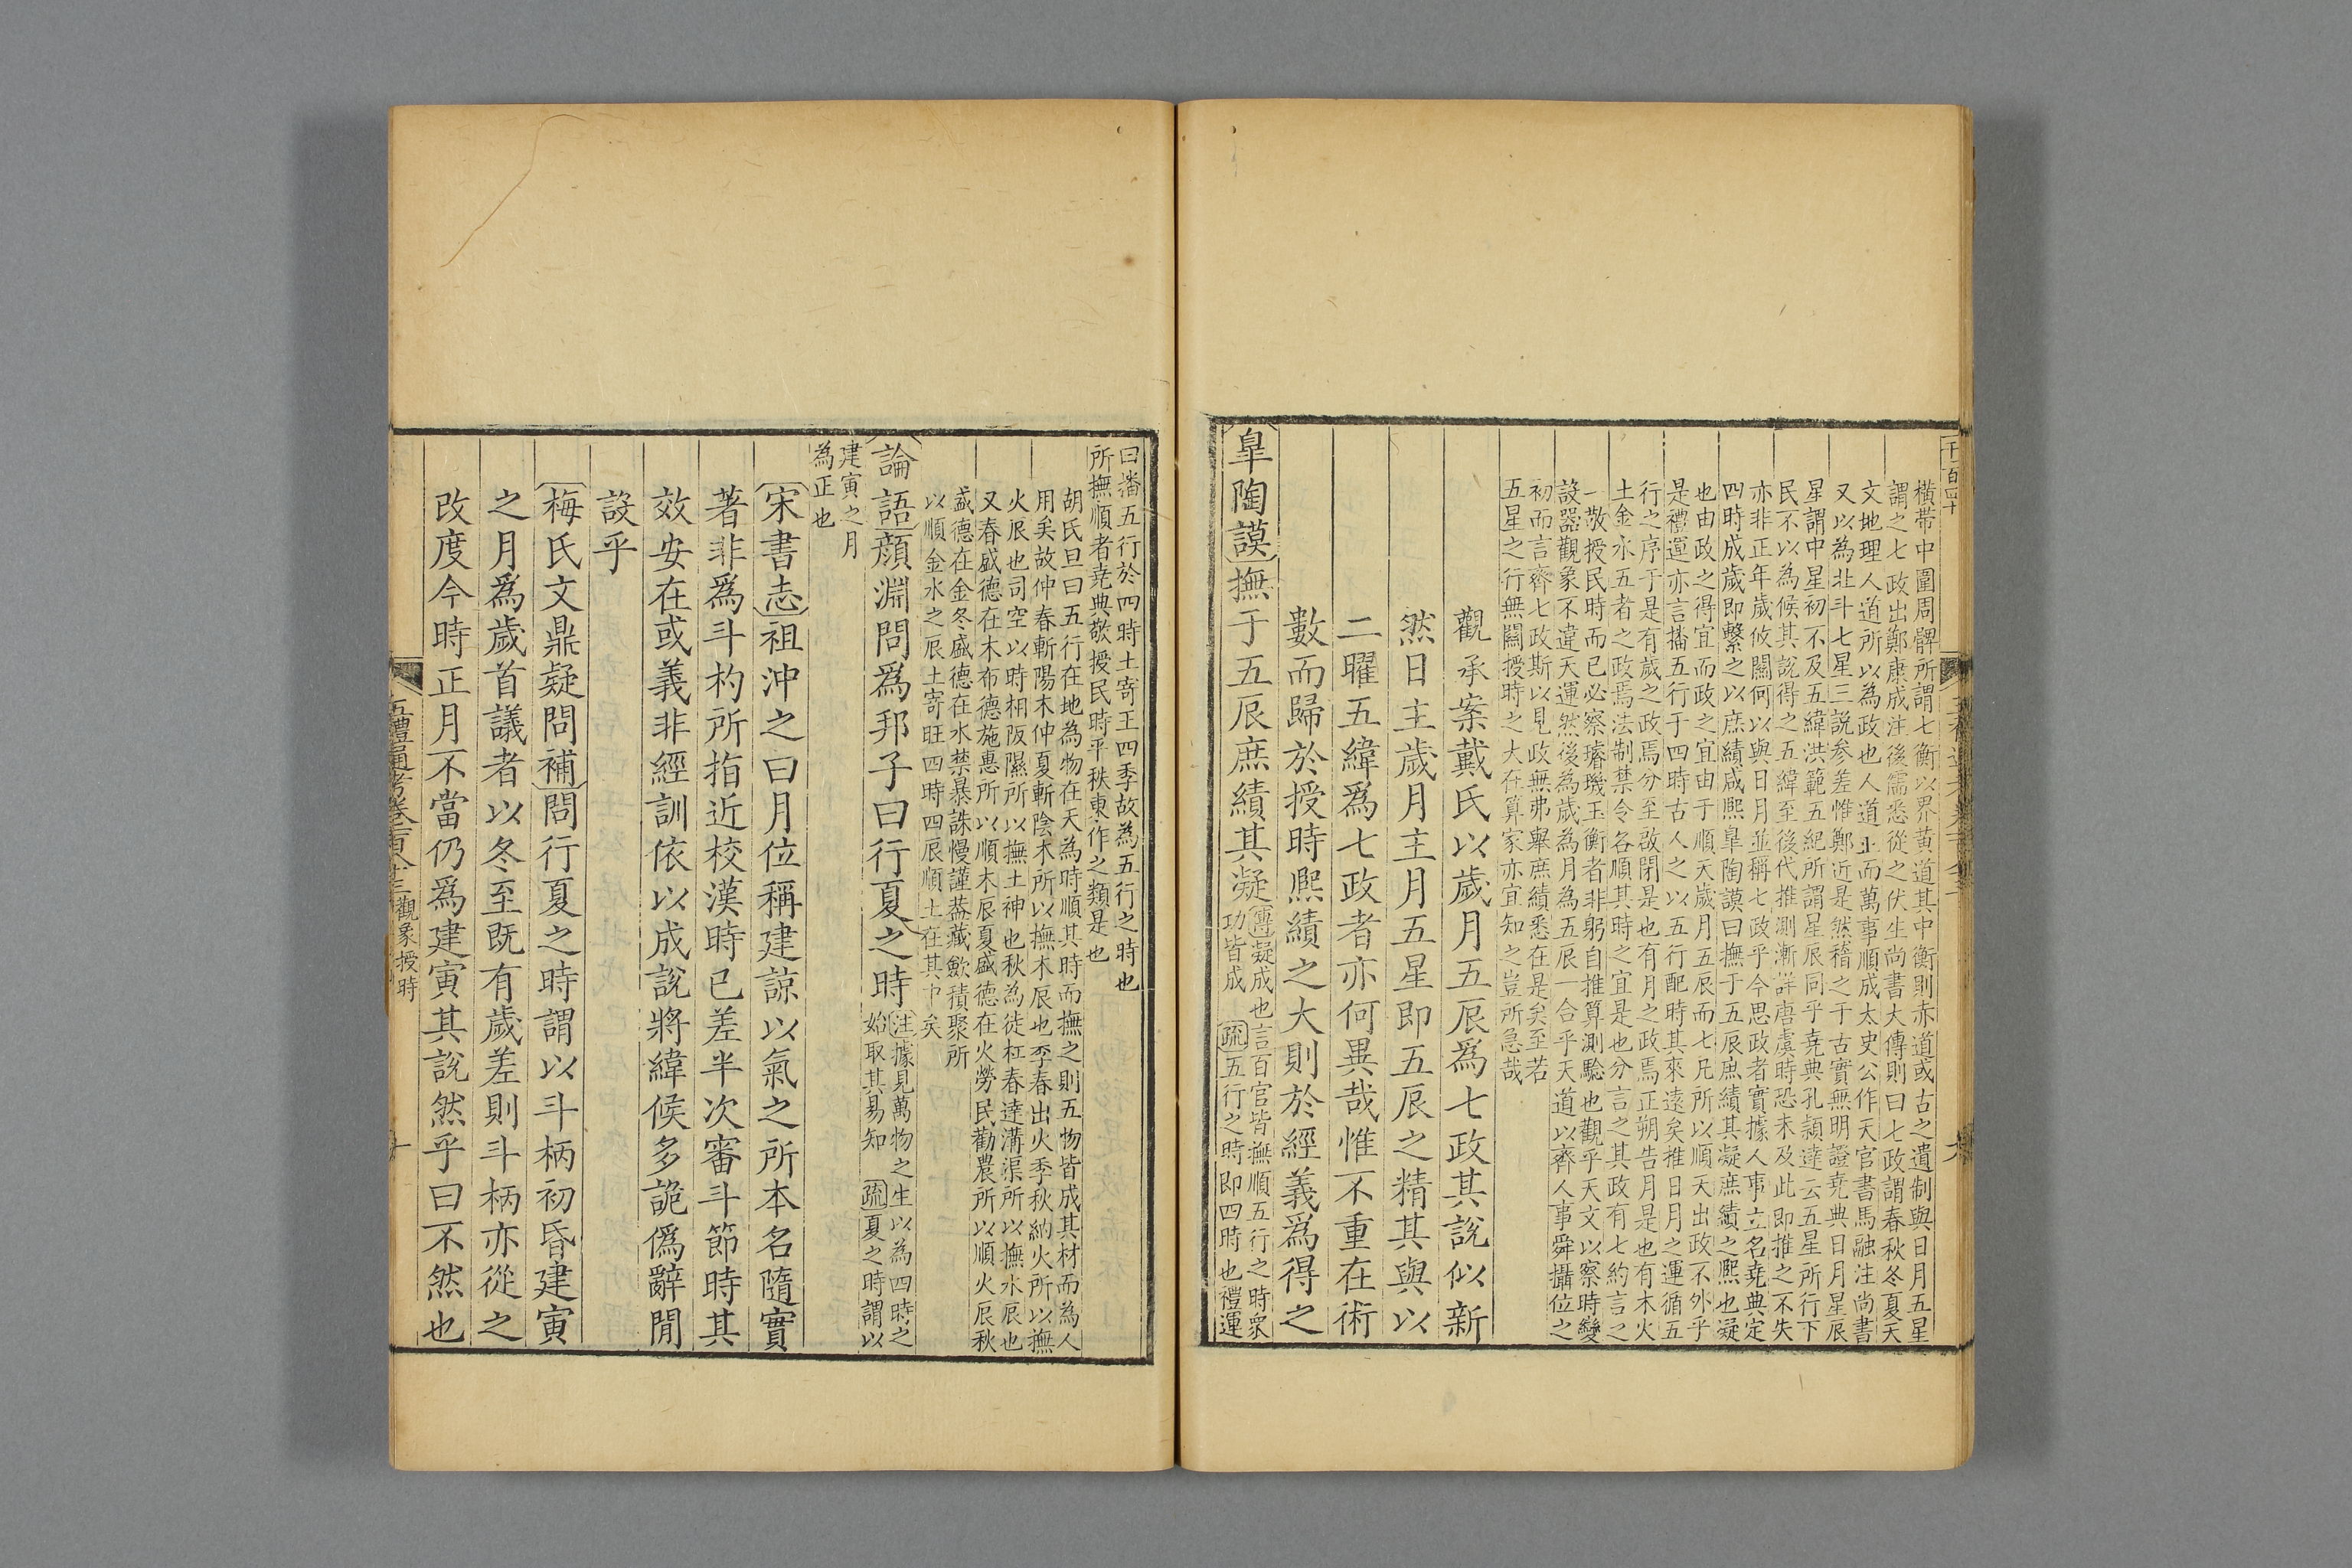 橫帶中圍周髀所謂七衡以界黃道其中衡則赤道或古之遺制與日月五星
謂之七政出鄭康成注後儒悉從之伏生尚書大傳則曰七政謂春秋冬夏天
文地理人道所以為政也人道正而萬事順成太史公作天官書馬融注尚書
又以為北斗七星三説參差惟鄭近是然稽之于古實無明證堯典日月星辰
星謂中星初不及五緯洪範五紀所謂星辰同乎堯典孔頴達云五星所行下
民不以為候其説得之五緯至後代推測漸詳唐虞時恐未及此即推之不失
亦非正年歲攸關何以與日月並稱七政乎今思政者實據人事立名堯典定
四時成歲即繫之以庶績咸熙皐陶謨曰撫于五辰庶績其凝庶績之熙也凝
也由政之得宜而政之宜由于順天歲月五辰而七凡所以順天出政不外乎
是禮運亦言播五行于四時古人之以五行配時其來遠矣推日月之運循五
行之序于是有歲之政焉分至啟閉是也有月之政焉正朔告月是也有木火
土金水五者之政焉法制禁令各順其時之宜是也分言之其政有七約言之
一敬授民時而已必察璿璣玉衡者非躬自推算測騐也觀乎天文以察時變
設器觀象不違天運然後為歲為月為五辰一合乎天道以齊人事舜攝位之
初而言齊七政斯以見政無弗舉庶績悉在是矣至若
五星之行無關授時之大在算家亦宜知之豈所急哉
觀承案戴氏以歲月五辰爲七政其說似新
然日主歲月主月五星即五辰之精其與以
二曜五緯爲七政者亦何異哉惟不重在術
數而歸於授時熙績之大則於經義爲得之
皐陶謨撫于五辰庶績其凝傳凝成也言百官皆撫順五行之時衆
功皆成 疏五行之時即四時也禮運
曰播五行於四時土寄王四季故為五行之時也
所撫順者堯典敬授民時平秩東作之類是也
胡氏旦曰五行在地為物在天為時順其時而撫之則五物皆成其材而為人
用矣故仲春斬陽木仲夏斬陰木所以撫木辰也季春出火季秋納火所以撫
火辰也司空以時相阪隰所以撫土神也秋為徒杠春達溝渠所以撫水辰也
又春盛德在木布德施惠所以順木辰夏盛德在火勞民勸農所以順火辰秋
盛德在金冬盛德在水禁暴誅慢謹蓋藏歛積聚所
以順金水之辰土寄旺四時四辰順土在其中矣
論語顔淵問爲邦子曰行夏之時注據見萬物之生以為四時之
始取其易知 疏夏之時謂以
建寅之月
為正也
宋書志祖沖之曰月位稱建諒以氣之所本名隨實
著非爲斗杓所指近校漢時已差半次審斗節時其
效安在或義非經訓依以成說將緯候多詭僞辭閒
設乎
梅氏文鼎疑問補問行夏之時謂以斗柄初昏建寅
之月爲歲首議者以冬至既有歲差則斗柄亦從之
改度今時正月不當仍爲建寅其說然乎曰不然也
五禮通考卷一百八十三 觀象授時
十